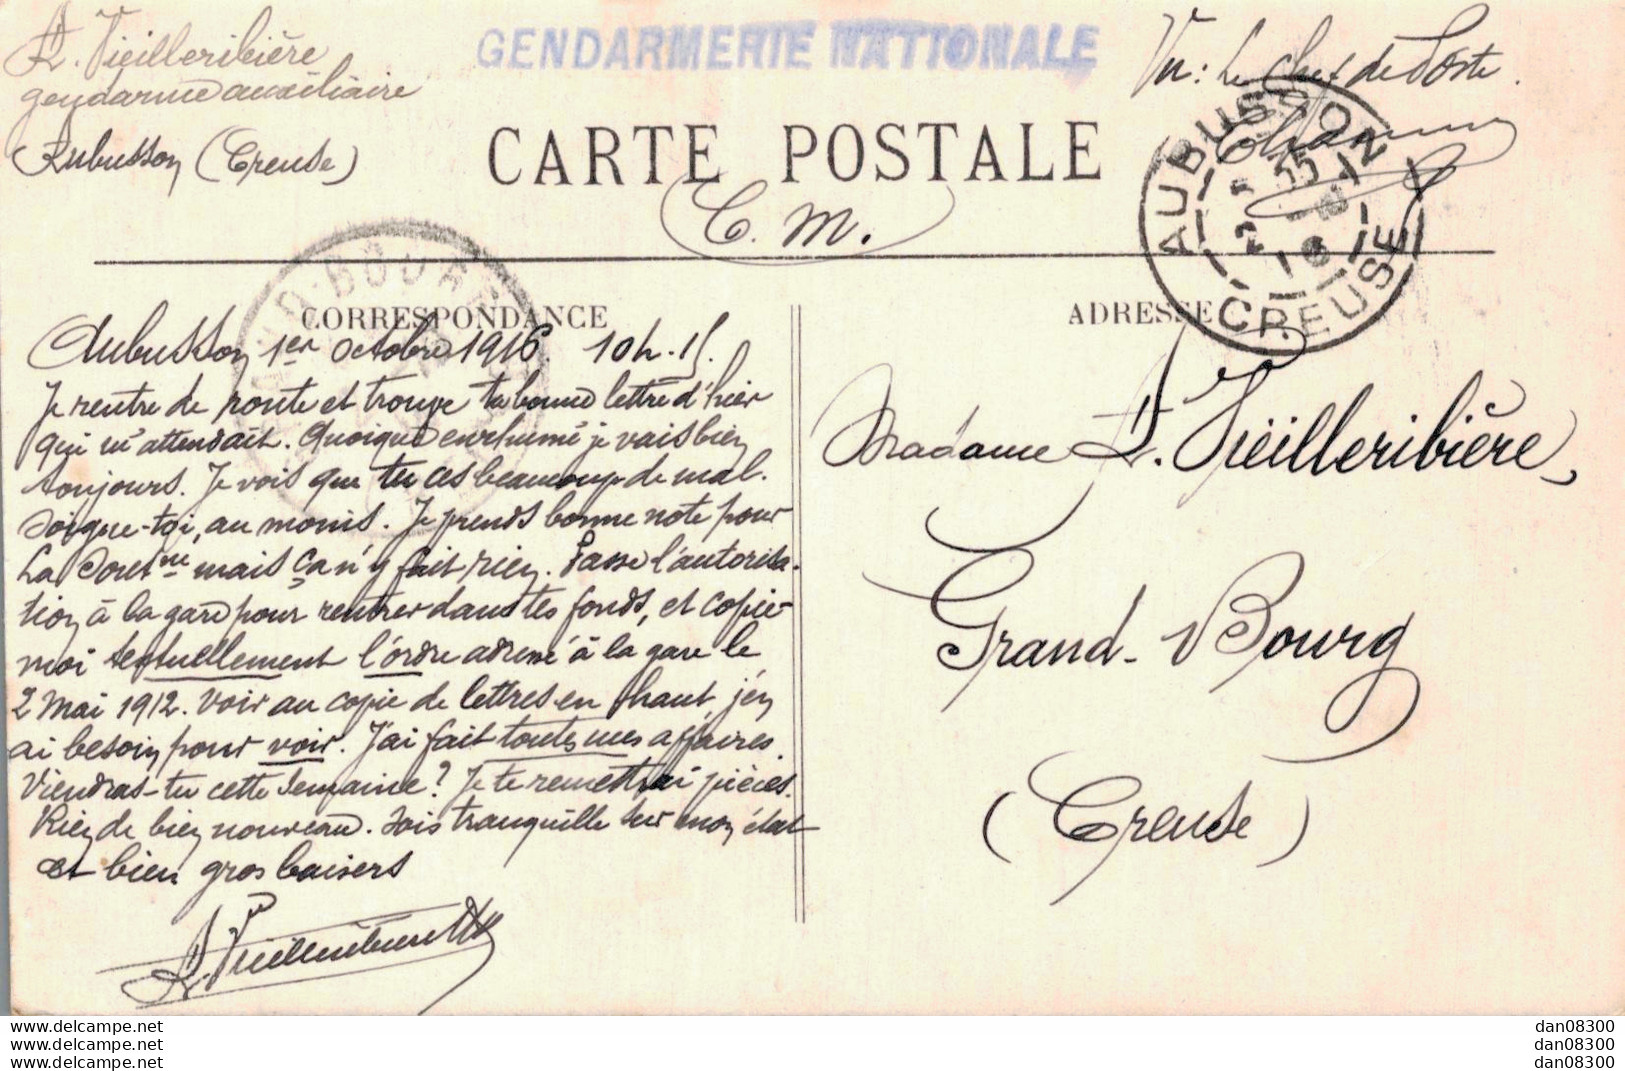 A. Vieilleribière
gendarme auxiliaire
Aubusson (Creuse)
GENDARMERIE NATIONALE
Vu : Le Chef de Poste.
CARTE POSTALE
C. M.
AUBUSSON
CREUSE
CORRESPONDANCE
ADRESSE
Aubusson 1er Octobre 1916. 10h. 15.
Je rentre de route et trouve ta bonne lettre d'hier
qui m'attendait. Quoique enrhumé je vais bien
toujours. Je vois que tu as beaucoup de mal.
Soigne-toi, au moins. Je prends bonne note pour
La Sout.ne mais ça n'y fait rien. Passe l'autorisa-
tion à la gare pour rentrer dans tes fonds, et copie-
moi textuellement l'ordre adressé à la gare le
2 Mai 1912. Voir au copie de lettres en haut, j'en
ai besoin pour voir. J'ai fait toutes mes affaires.
Viendras-tu cette semaine ? Je te remettrai pièces.
Rien de bien nouveau. Sois tranquille sur mon état
et bien gros baisers
A. Vieilleribière
Madame A. Vieilleribière,
Grand-Bourg
(Creuse)
www.delcampe.net
www.delcampe.net
www.delcampe.net
dan08300
dan08300
dan08300